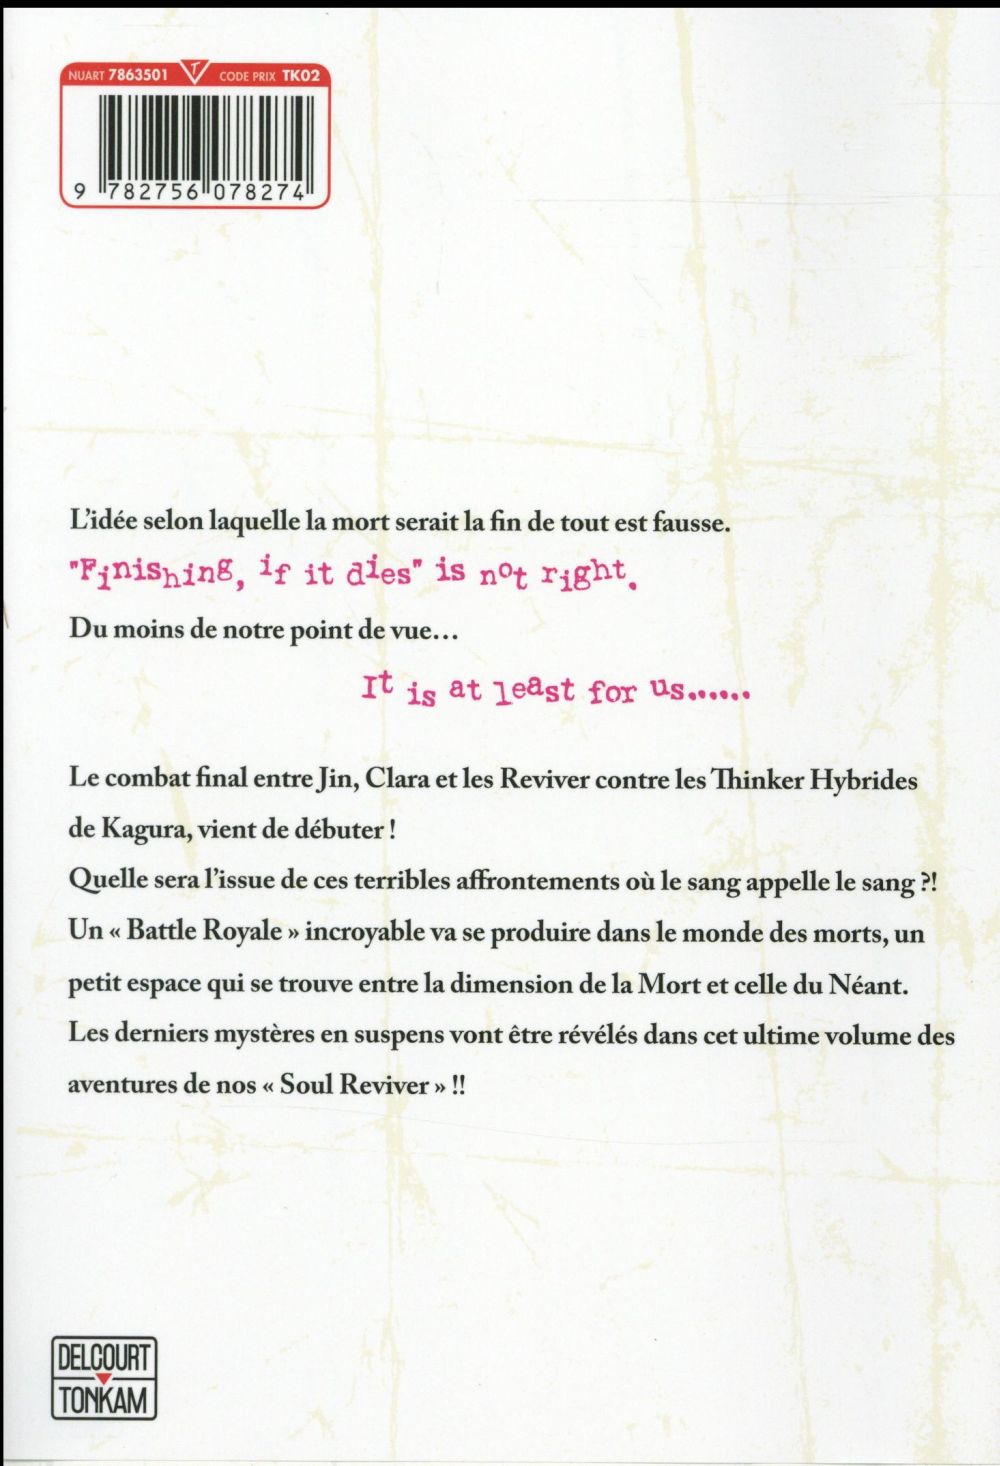 NUART 7863501 T CODE PRIX TK02
9 782756 078274
L'idée selon laquelle la mort serait la fin de tout est fausse.
"Finishing, if it dies" is not right.
Du moins de notre point de vue...
It is at least for us......
Le combat final entre Jin, Clara et les Reviver contre les Thinker Hybrides
de Kagura, vient de débuter !
Quelle sera l'issue de ces terribles affrontements où le sang appelle le sang ?!
Un « Battle Royale » incroyable va se produire dans le monde des morts, un
petit espace qui se trouve entre la dimension de la Mort et celle du Néant.
Les derniers mystères en suspens vont être révélés dans cet ultime volume des
aventures de nos « Soul Reviver » !!
DELCOURT
TONKAM